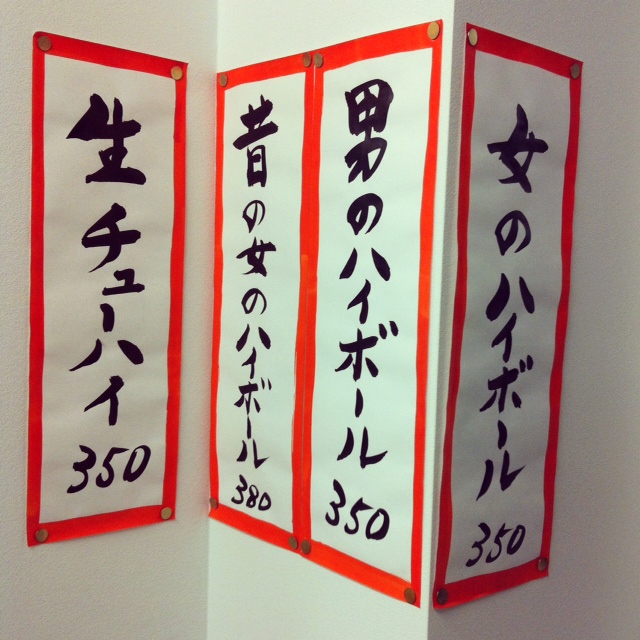 生チューハイ
350
昔の女のハイボール
380
男のハイボール
350
女のハイボール
350